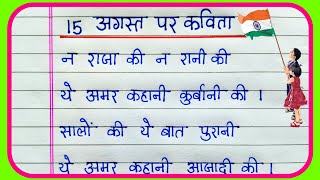 15 अगस्त पर कविता
न राजा की न रानी की
ये अमर कहानी कुर्बानी की ।
सालों की ये बात पुरानी
ये अमर कहानी आजादी की ।